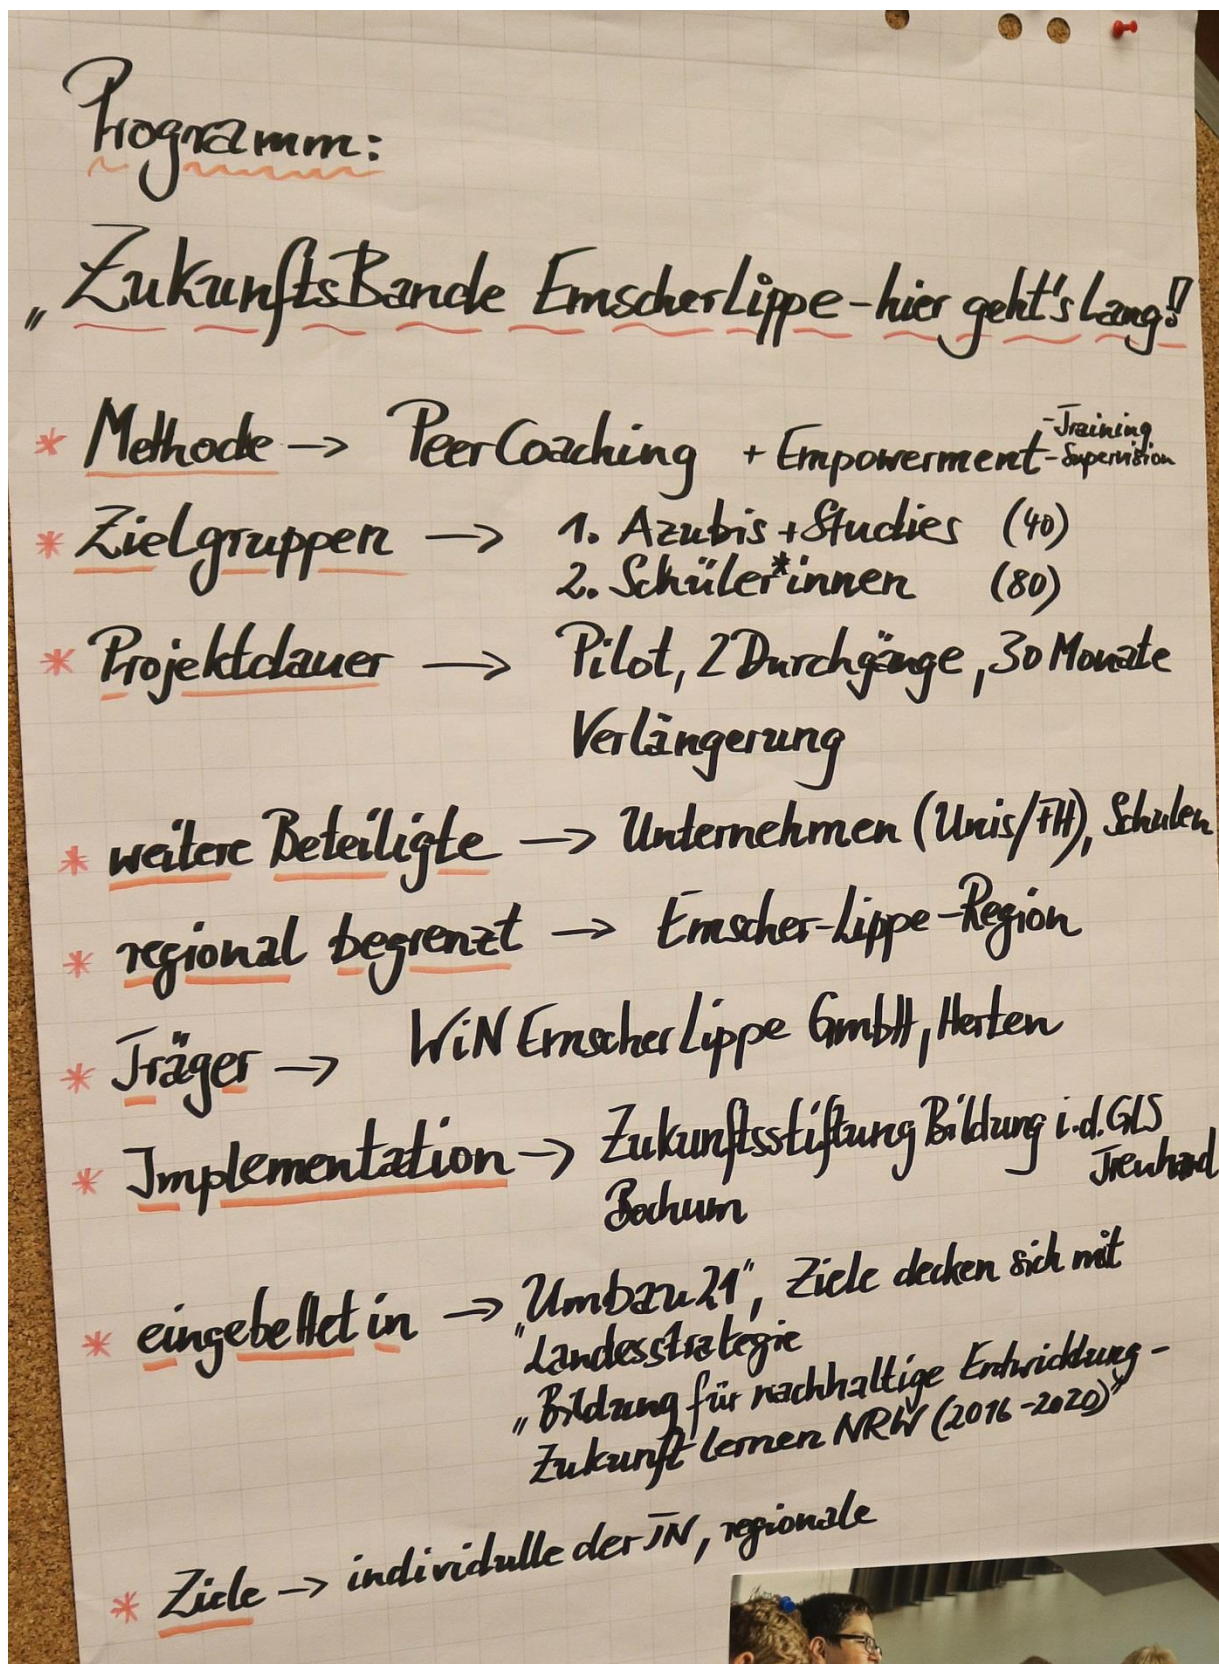 Programm:
„ZukunftsBande EmscherLippe - hier geht's Lang!"
* Methode -> PeerCoaching + Empowerment - Training
- Supervision
* Zielgruppen -> 1. Azubis + Studies (40)
2. Schüler*innen (80)
* Projektdauer -> Pilot, 2 Durchgänge, 30 Monate
Verlängerung
* weitere Beteiligte -> Unternehmen (Unis/FH), Schulen
* regional begrenzt -> Emscher-Lippe-Region
* Träger -> WiN EmscherLippe GmbH, Herten
* Implementation -> Zukunftsstiftung Bildung i.d. GLS
Treuhand
Bochum
* eingebettet in -> "Umbau21", Ziele decken sich mit
Landesstrategie
„Bildung für nachhaltige Entwicklung -
Zukunft lernen NRW (2016-2020)"
* Ziele -> individulle der TN, regionale